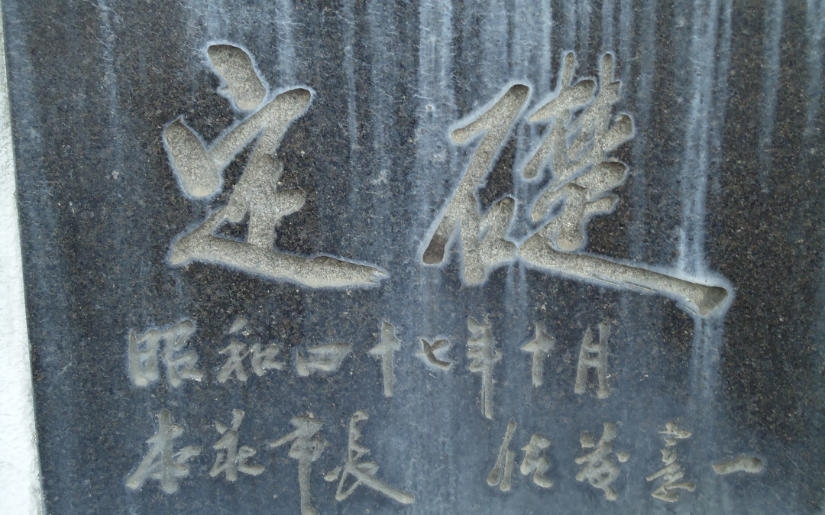 定礎
昭和四十七年十月
本荘市長 佐藤憲一